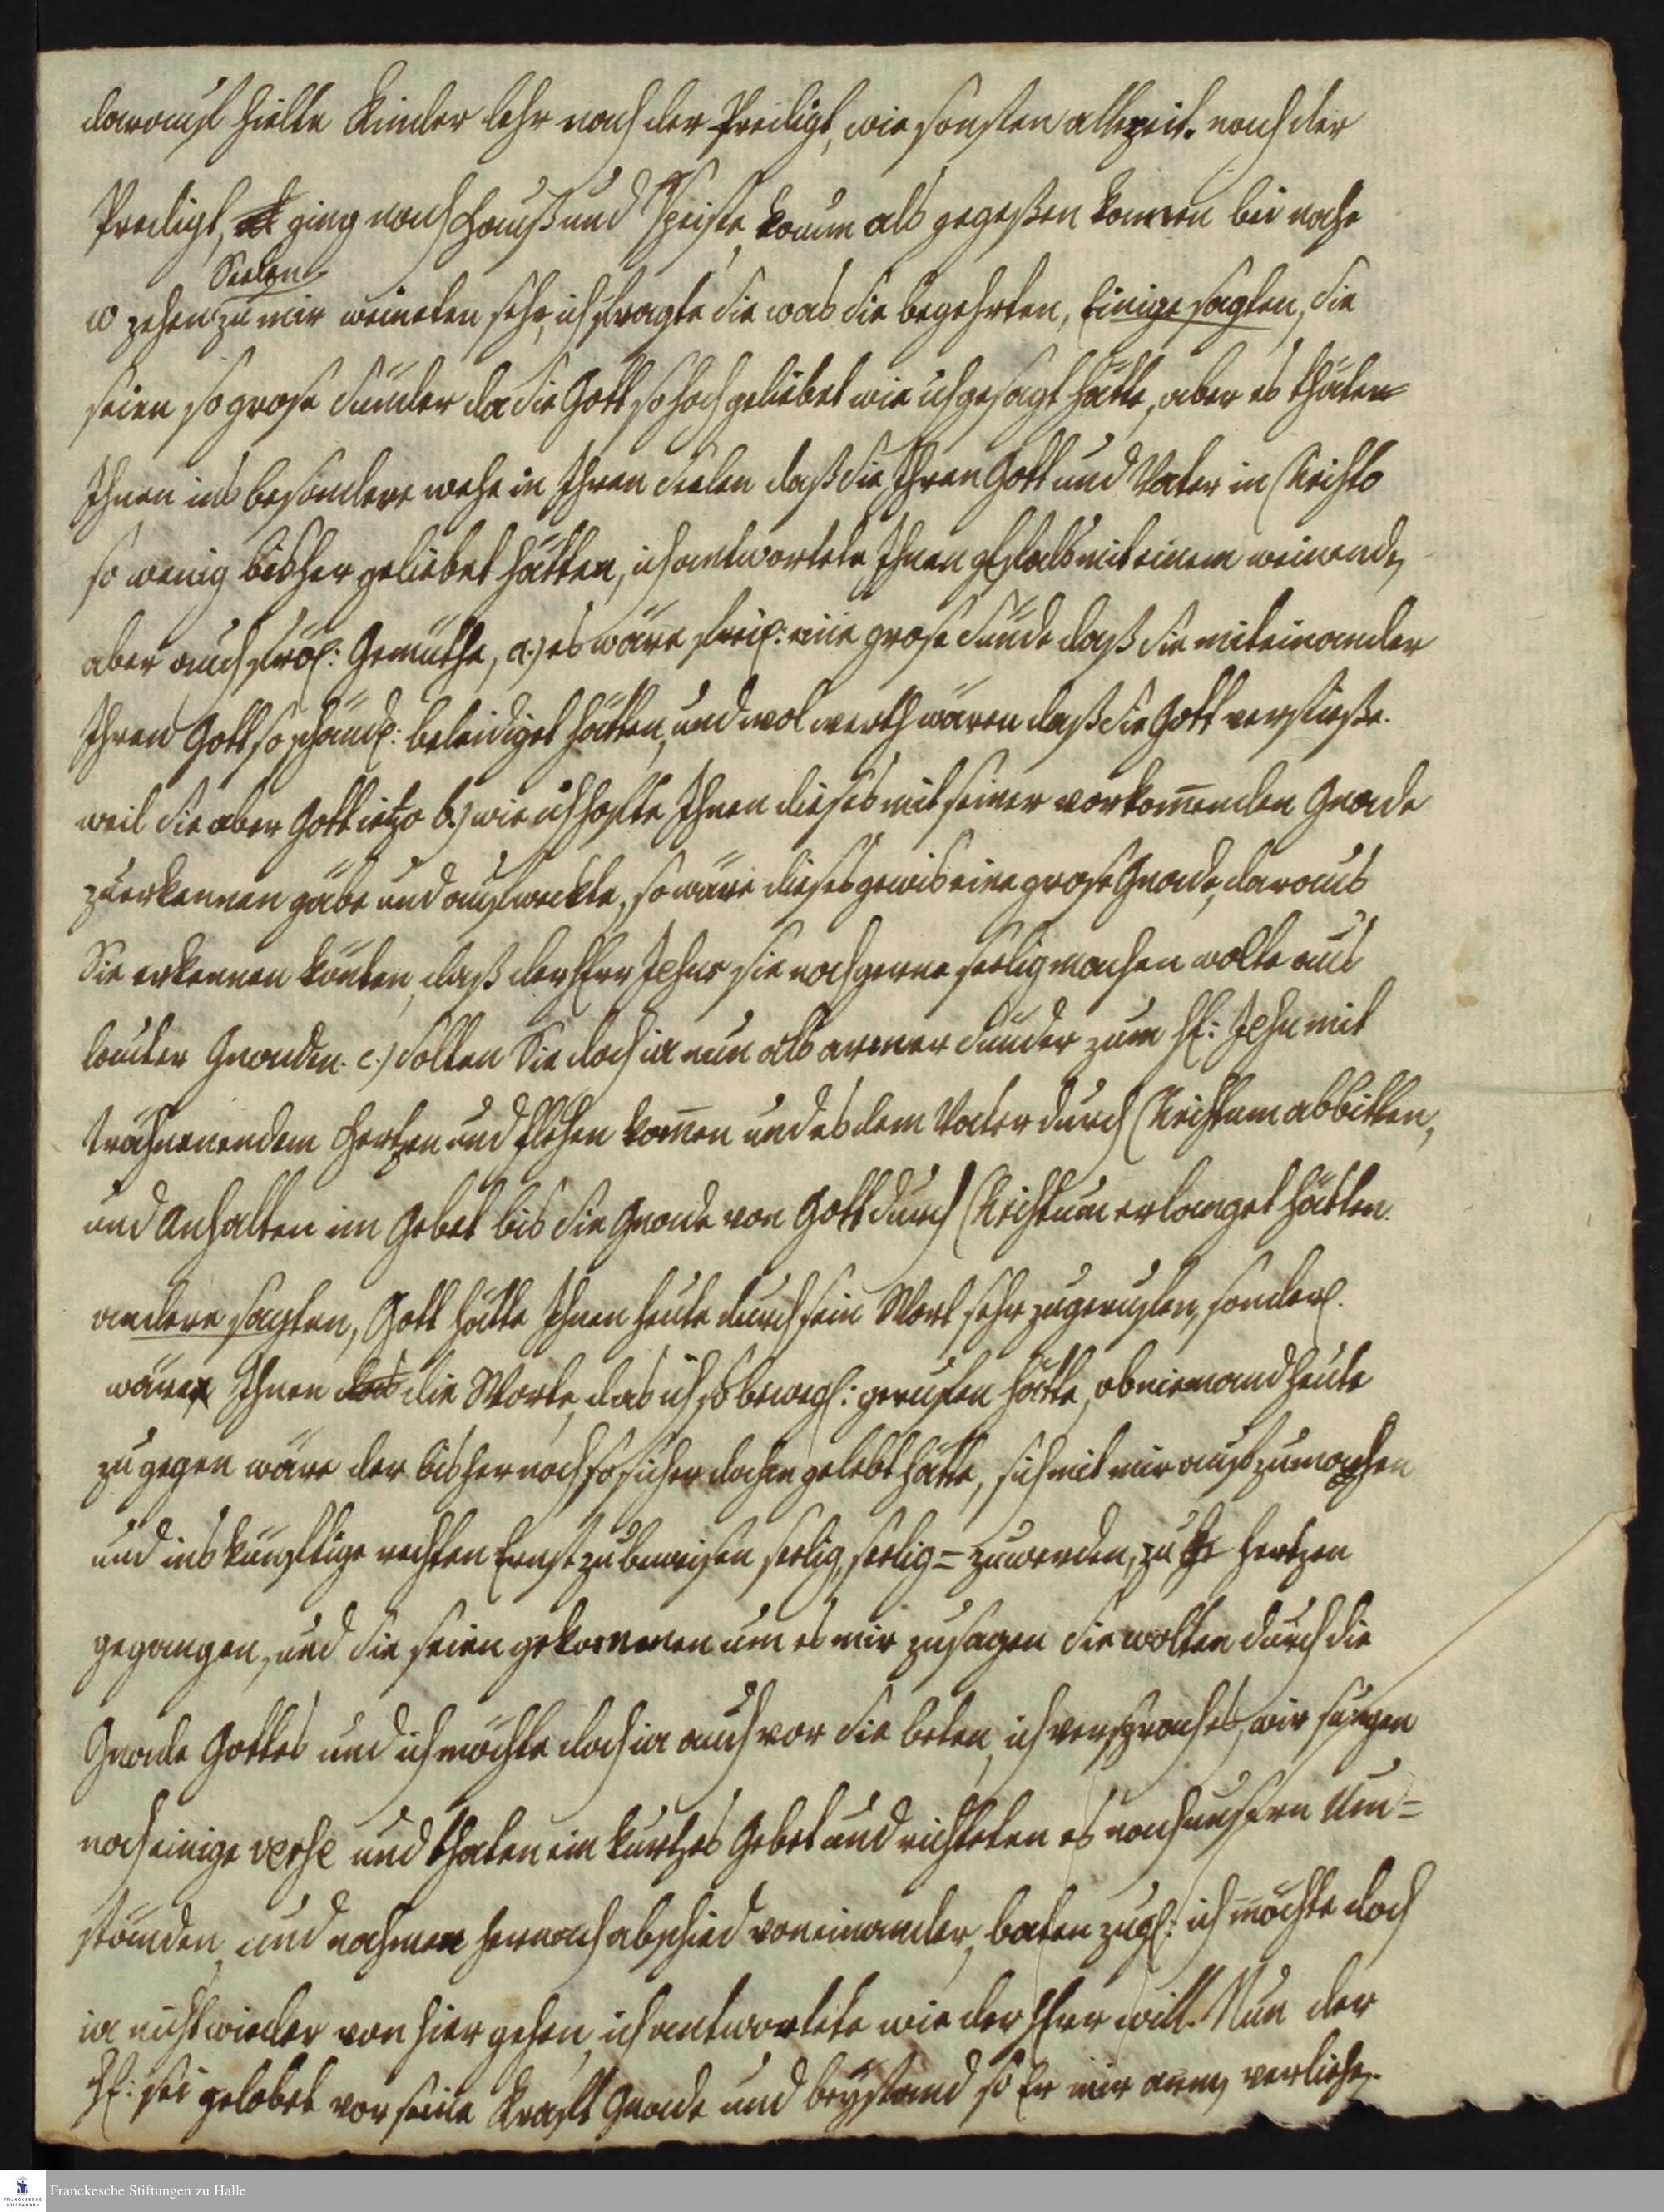 darauf hielte Kinder lehr nach der Predigt, wie sonsten allezeit. nach der
Predigt, ging nach Hauß und Speiste, kaum als gegeßen kommen bei nahe
Seelen
zehen zu mir weineten sehr, ich fragte Sie was Sie begehrten, Einige sagten, Sie
seien so grose Sünder da Sie Gott so hoch geliebet wie ich gesagt hätte, aber es thäten
Ihnen ins besondere wehe in Ihren Seelen daß Sie Ihren Gott und Vater in Christo
so wenig bisher geliebet hätten, ich antwortete Ihnen mit einem weinend,
aber auch fröl: Gemüthe, a.) es wäre freil: eine grose Sünde daß Sie miteinander
Ihren Gott so schändl: beleidiget hätten, und wol werth wären daß Sie Gott verstieße.
weil Sie aber Gott ietzo b.) wie ich hoffte Ihnen dieses mit seiner vorkom̅enden Gnade
zu erkennen gäbe und aufweckte, so wäre dieses gewis eine grose Gnade, daraus
Sie erkennen könten, daß der Herr Jesus Sie noch gerne seelig machen wolte aus
lauter Gnaden. c.) Solten Sie doch ia nun als armer Sünder zum H: Jesu mit
trähnenendem Hertzen und flehen kom̅en und es dem Vater durch Christum abbitten,
und Anhalten im Gebet bis Sie Gnade von Gott durch Christum erlanget hätten.
andere sagten, Gott hätte Ihnen heute durch sein Wort sehr zugeruffen, sonderl.
wäre Ihnen die Worte, das ich so bewegl: gerufen hätte, ob niemand heute
zu gegen wäre der bisher noch so sicher dahin gelebt hätte, sich mit mir aufzumachen
und ins künfftige rechten Ernst zu beweisen seelig, seelig = zuwerden, zu Hertzen
gegangen, und Sie seien gekommen um es mir zusagen Sie wolten durch die
Gnade Gottes und ich möchte doch ia auch vor Sie beten, ich versprach es, wir sungen
noch einige verse und thaten ein kurtzes Gebet und richteten es nach unsern Um=
ständen, und nahmen hernach abschied voneinander, baten zugl: ich möchte doch
ia nicht wieder von hier gehen, ich antwortete wie der Herr will. Nun der
H: sei gelobet vor seine Krafft Gnade und beystand so Er mir verliehe.
Franckesche Stiftungen zu Halle
FRANCKESCHE STIFTUNGEN